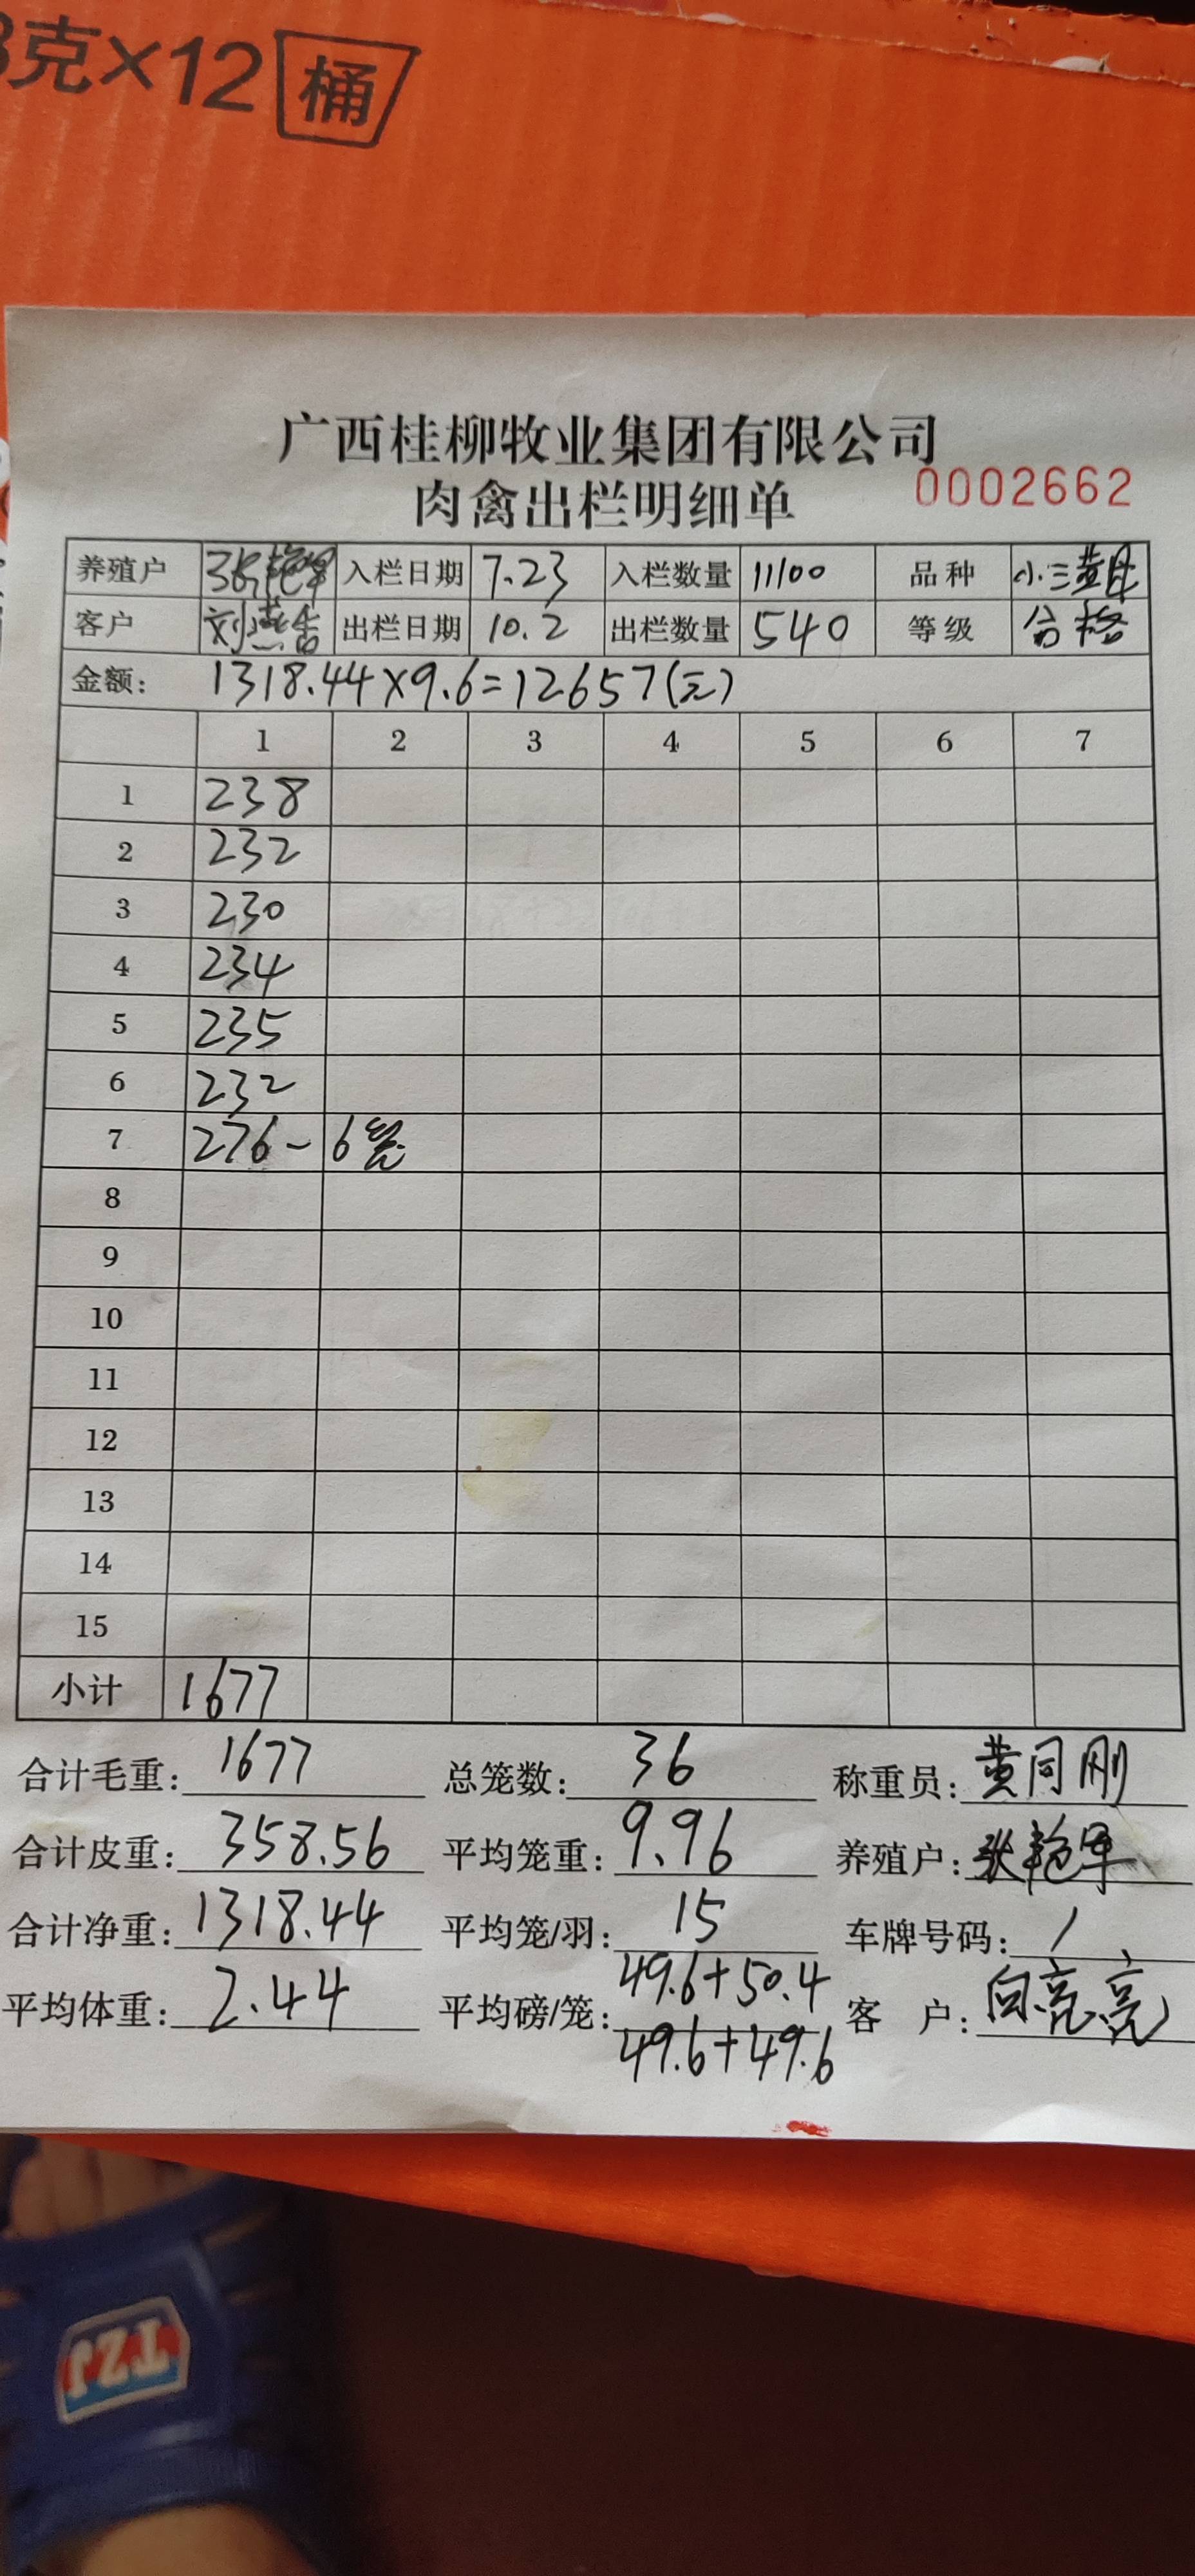 克×12 桶
广西桂柳牧业集团有限公司
肉禽出栏明细单 0002662
养殖户 张艳军 入栏日期 7.23 入栏数量 11100 品种 小三黄母
客户 入栏日期 10.2 出栏数量 540 等级 合格
金额: 1318.44×9.6=12657(元)
1 2 3 4 5 6 7
1 238
2 232
3 230
4 234
5 235
6 232
7 276- 6笼
8
9
10
11
12
13
14
15
小计 1677
合计毛重: 1677 总笼数: 36 称重员: 黄同刚
合计皮重: 358.56 平均笼重: 9.96 养殖户: 张艳军
合计净重: 1318.44 平均笼/羽: 15 车牌号码: /
平均体重: 2.44 平均磅/笼: 49.6+50.4 客户: 向亮亮
49.6+49.6
TZJ